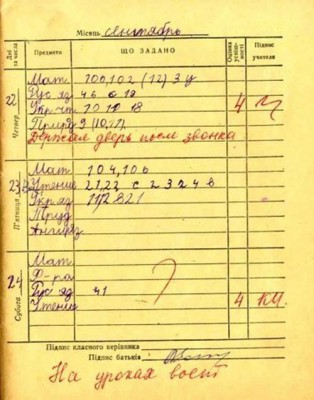 Місяць сентябрь
Дні та числа Предмети ЩО ЗАДАНО Оцінка успішності Підпис учителя
22 Четвер
Мат. 100,102 (12) 3 у
Рус яз 46 с 19
Укр. чт 20 19 18 4
Природ 9 (10,11)
Держал дверь после звонка
23 П'ятниця
Мат 104,106
Чтение 21,22 с 23 24 8
Укр яз
Труд
Англ яз
24 Субота
Мат.
Ф-ра
Рус яз 41
Чтение 4
Підпис класного керівника
Підпис батьків
На уроках воет